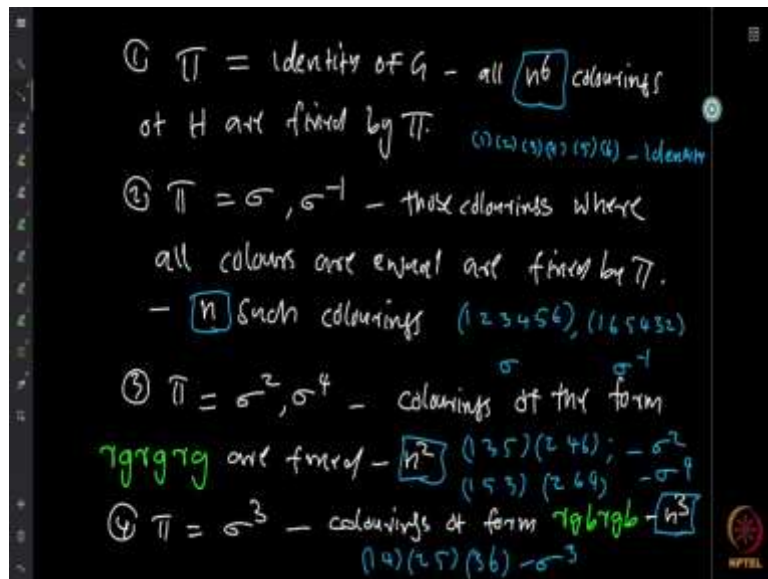 ① π = identity of G - all n⁶ colourings
of H are fixed by π.
(1)(2)(3)(4)(5)(6) - identity
② π = σ, σ⁻¹ - those colourings where
all colours are equal are fixed by π.
- n such colourings (123456), (165432)
σ σ⁻¹
③ π = σ², σ⁴ - colourings of the form
rgrgrg are fixed - n² (135)(246); - σ²
(153)(264) - σ⁴
④ π = σ³ - colourings of form rgbrgb - n³
(14)(25)(36) - σ³
NPTEL